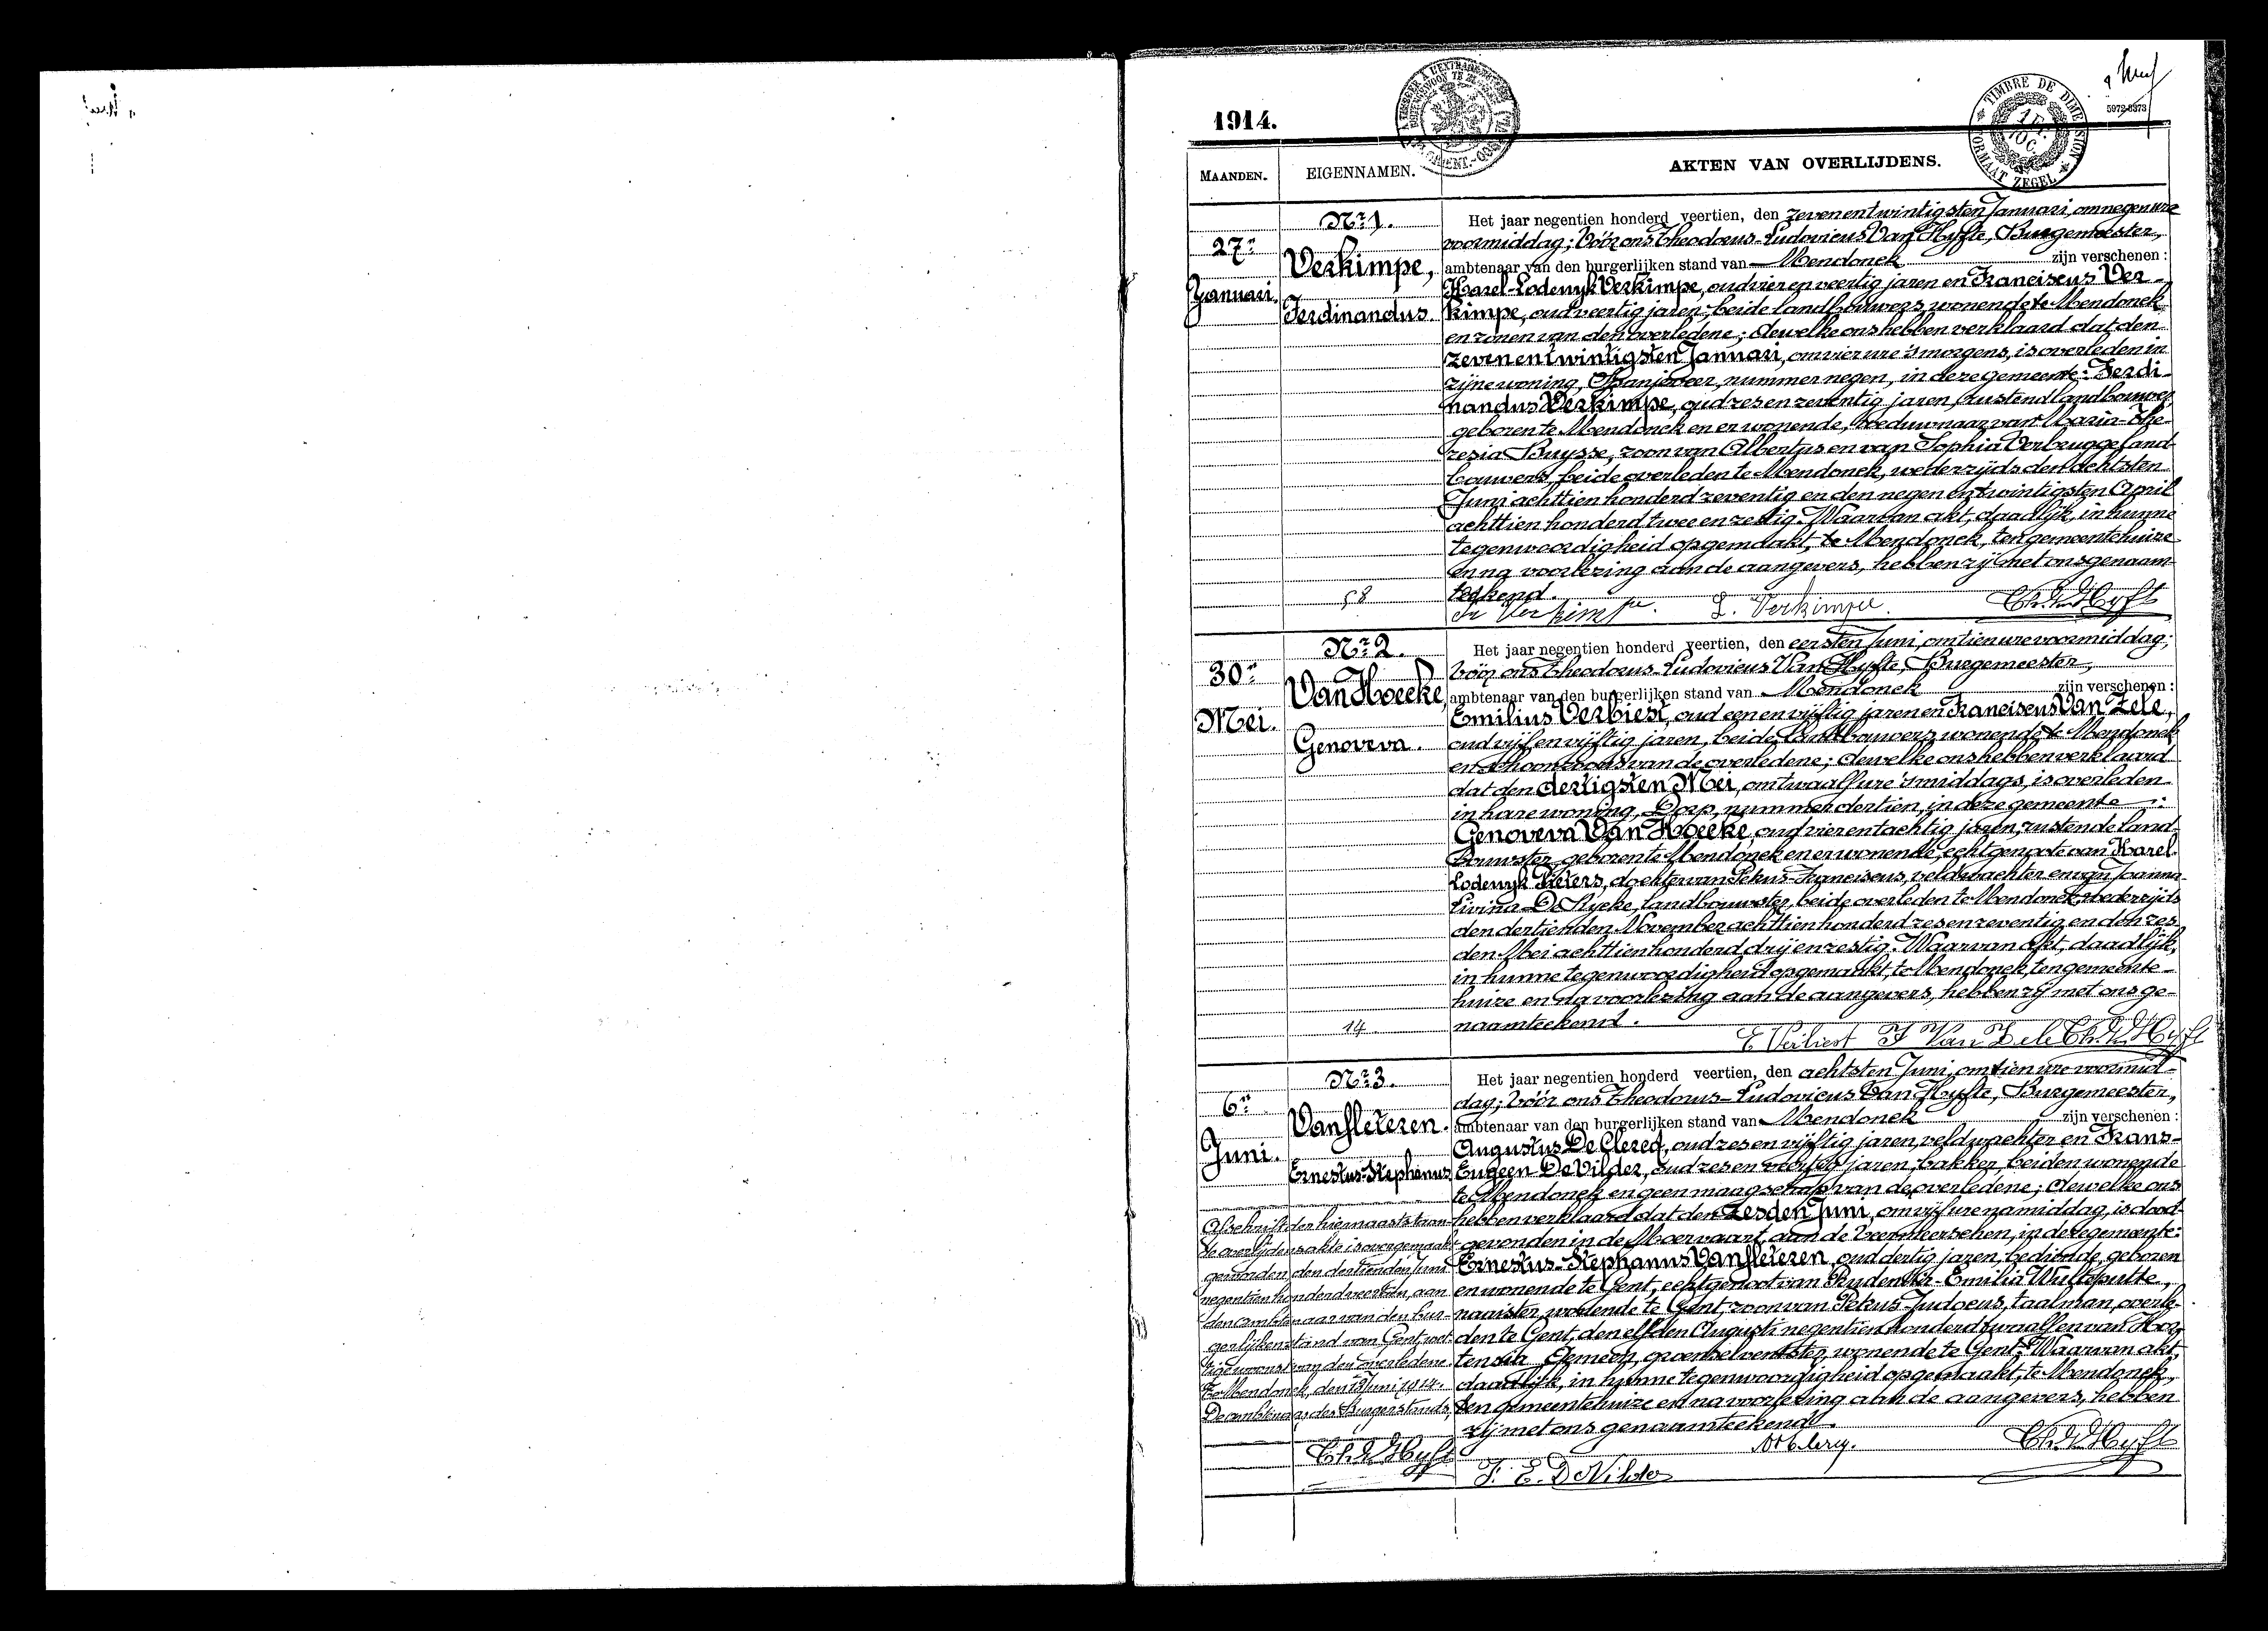 1914.
5972-8373
TIMBRE DE DIMENSION
FORMAAT ZEGEL
MAANDEN.
EIGENNAMEN.
AKTEN VAN OVERLIJDENS.
27n
Januari.
Nr 1.
Verkimpe,
Ferdinandus.
58
Het jaar negentien honderd veertien, den zevenentwintigsten Januari, om negen ure
voormiddag; Vóór ons Theodorus-Ludovicus Van Hyfte, Burgemeester,
ambtenaar van den burgerlijken stand van Mendonck zijn verschenen:
Karel-Lodewyk Verkimpe, oud vier en veertig jaren en Franciscus Ver-
kimpe, oud veertig jaren, beide landbouwers, wonende te Mendonck
en zonen van den overledene; dewelke ons hebben verklaard dat den
zevenentwintigsten Januari, om vier ure 's morgens, is overleden in
zijne woning, Spanjeveer, nummer negen, in deze gemeente: Ferdi-
nandus Verkimpe, oud zes en zeventig jaren, rustend landbouwer,
geboren te Mendonck en er wonende, weduwnaar van Maria-The-
resia Buysse, zoon van Albertus en van Sophia Verbrugge, land-
bouwers, beide overleden te Mendonck, wederzijds den achtsten
Juni achttien honderd zeventig en den negen en twintigsten April
achttien honderd twee en zestig. Waarvan akt, daadlijk, in hunne
tegenwoordigheid opgemaakt, te Mendonck, ten gemeentehuize
en na voorlezing aan de aangevers, hebben zij met ons genaam-
teekend.
Fr Verkimpe. L. Verkimpe. Th. V. Hyfte
30n
Mei.
Nr 2.
Van Hoecke,
Genoveva.
14
Het jaar negentien honderd veertien, den eersten Juni, om tien ure voormiddag;
Vóór ons Theodorus-Ludovicus Van Hyfte, Burgemeester,
ambtenaar van den burgerlijken stand van Mendonck zijn verschenen:
Emilius Verbiest, oud een en vijftig jaren en Franciscus Van Zele,
oud vijf en vijftig jaren, beide landbouwers, wonende te Mendonck
en schoonzoons van de overledene; dewelke ons hebben verklaard
dat den dertigsten Mei, om twaalf ure 's middags, is overleden
in hare woning, Dorp, nummer dertien, in deze gemeente:
Genoveva Van Hoecke, oud vier en tachtig jaren, rustende land-
bouwster, geboren te Mendonck en er wonende, echtgenoote van Karel-
Lodewyk Pieters, dochter van Petrus-Franciscus, veldwachter en van Joanna-
Livina De Rycke, landbouwster, beide overleden te Mendonck, wederzijds
den dertienden November achttien honderd zes en zeventig en den zes-
den Mei achttien honderd drij en zestig. Waarvan akt, daadlijk,
in hunne tegenwoordigheid opgemaakt, te Mendonck, ten gemeente-
huize en na voorlezing aan de aangevers, hebben zij met ons ge-
naamteekend.
E Verbiest F Van Zele Th. V. Hyfte
6n
Juni.
Nr 3.
Vanfleteren.
Ernestus-Stephanus
Het jaar negentien honderd veertien, den achtsten Juni, om tien ure voormid-
dag; Vóór ons Theodorus-Ludovicus Van Hyfte, Burgemeester,
ambtenaar van den burgerlijken stand van Mendonck zijn verschenen:
Augustus De Clercq, oud zes en vijftig jaren, veldwachter en Frans-
Eugeen De Vilder, oud zes en veertig jaren, bakker, beiden wonende
te Mendonck en geen maagschap van de overledene; dewelke ons
hebben verklaard dat den zesden Juni, om vijf ure namiddag, is dood
gevonden in de Moervaart, aan de Veermeerschen, in deze gemeente:
Ernestus-Stephanus Vanfleteren, oud dertig jaren, bediende, geboren
en wonende te Gent, echtgenoot van Prudentia-Emilia Wulteputte,
naaister, wonende te Gent, zoon van Petrus-Judocus, taalman, overle-
den te Gent, den elfden Augusti negentien honderd twaalf en van Hor-
tensia Gemeen, groenselventster, wonende te Gent. Waarvan akt,
daadlijk, in hunne tegenwoordigheid opgemaakt, te Mendonck,
ten gemeentehuize en na voorlezing aan de aangevers, hebben
zij met ons genaamteekend.
Afschrift der hiernaaststaan-
de overlijdensakte is overgemaakt
geworden den dertienden Juni
negentien honderd veertien, aan
den ambtenaar van den bur-
gerlijken stand van Gent, wet-
tige woonst van den overledene.
Te Mendonck, den 13 Juni 1914.
De ambtenaar des Burgerstands,
Th. V. Hyfte
F. E. De Vilder
Th. V. Hyfte